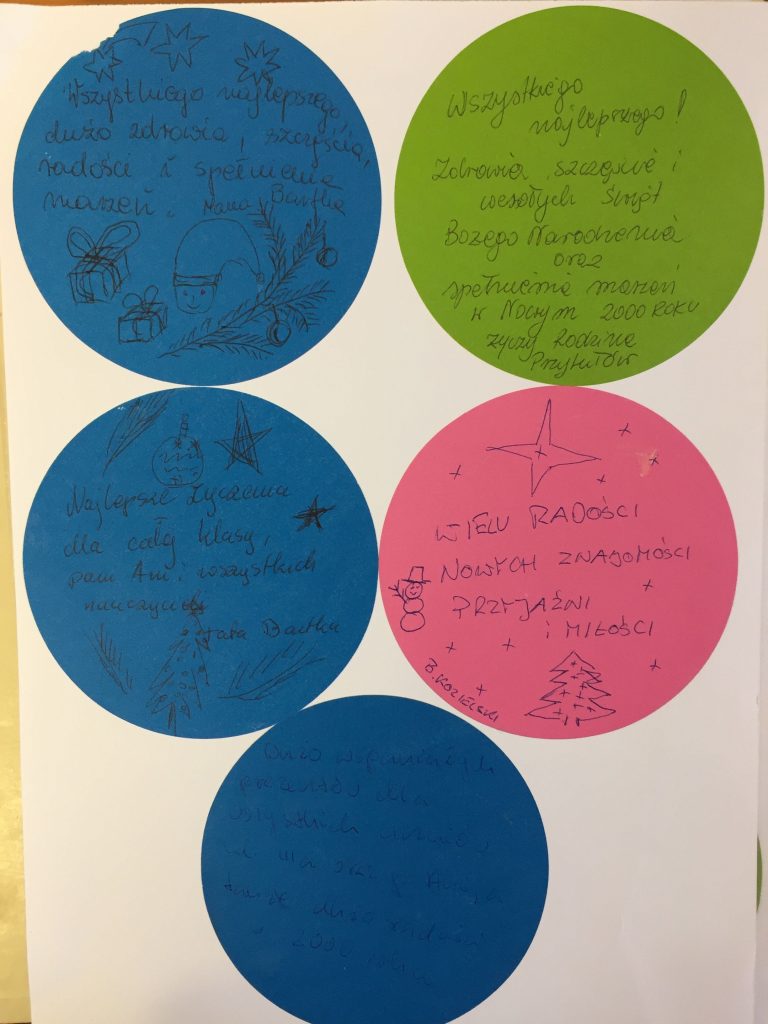 Wszystkiego najlepszego,
dużo zdrowia, szczęścia,
radości i spełnienia
marzeń. Mama Bartka
Wszystkiego
najlepszego!
Zdrowia, szczęścia i
wesołych Świąt
Bożego Narodzenia
oraz
spełnienia marzeń
w Nowym 2000 ROKU
życzy Rodzina
Przytułów
Najlepsze życzenia
dla całej klasy,
pani Ani i wszystkich
nauczycieli
tata Bartka
WIELU RADOŚCI
NOWYCH ZNAJOMOŚCI
PRZYJAŹNI
i MIŁOŚCI
B. KOZIELSKI
Dużo wspaniałych
dla
wszystkich uczniów
kl. oraz
dużo radości
w 2000 roku